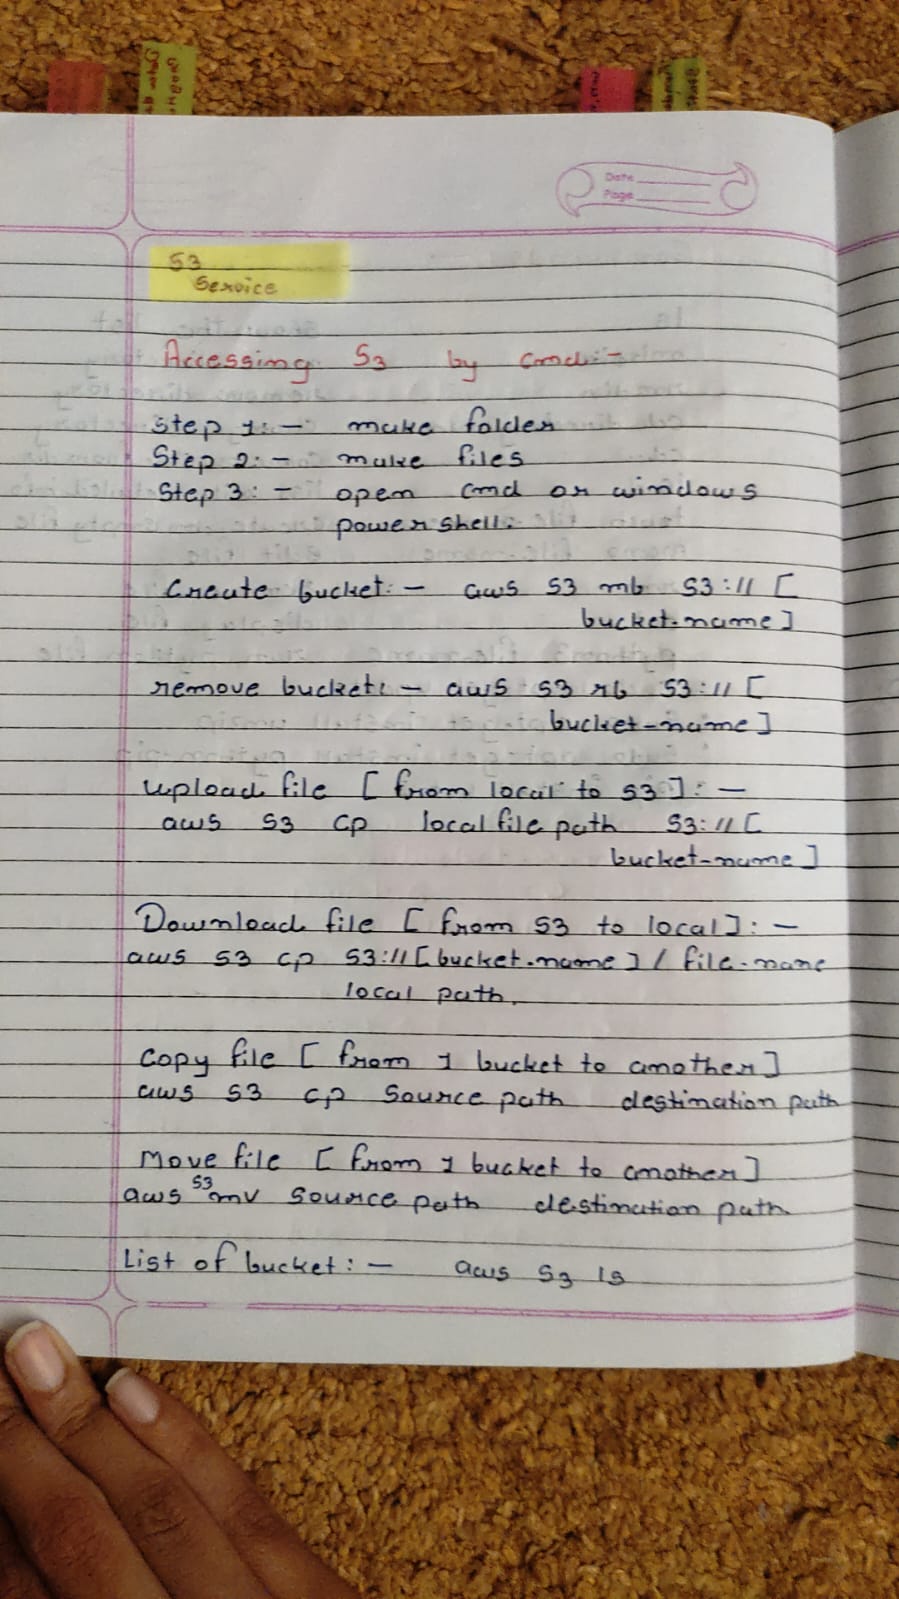 Date
Page
S3
Service
Accessing S3 by cmd:-
Step 1:- make folder
Step 2:- make files
Step 3:- open cmd or windows
powershell.
Create bucket:- aws s3 mb s3://[
bucket-name]
remove bucket:- aws s3 rb s3://[
bucket-name]
upload file [from local to s3]:-
aws s3 cp local file path s3://[
bucket-name]
Download file [from s3 to local]:-
aws s3 cp s3://[bucket-name]/file-name
local path.
Copy file [from 1 bucket to another]
aws s3 cp source path destination path
Move file [from 1 bucket to another]
aws s3 mv source path destination path
List of bucket:- aws s3 ls